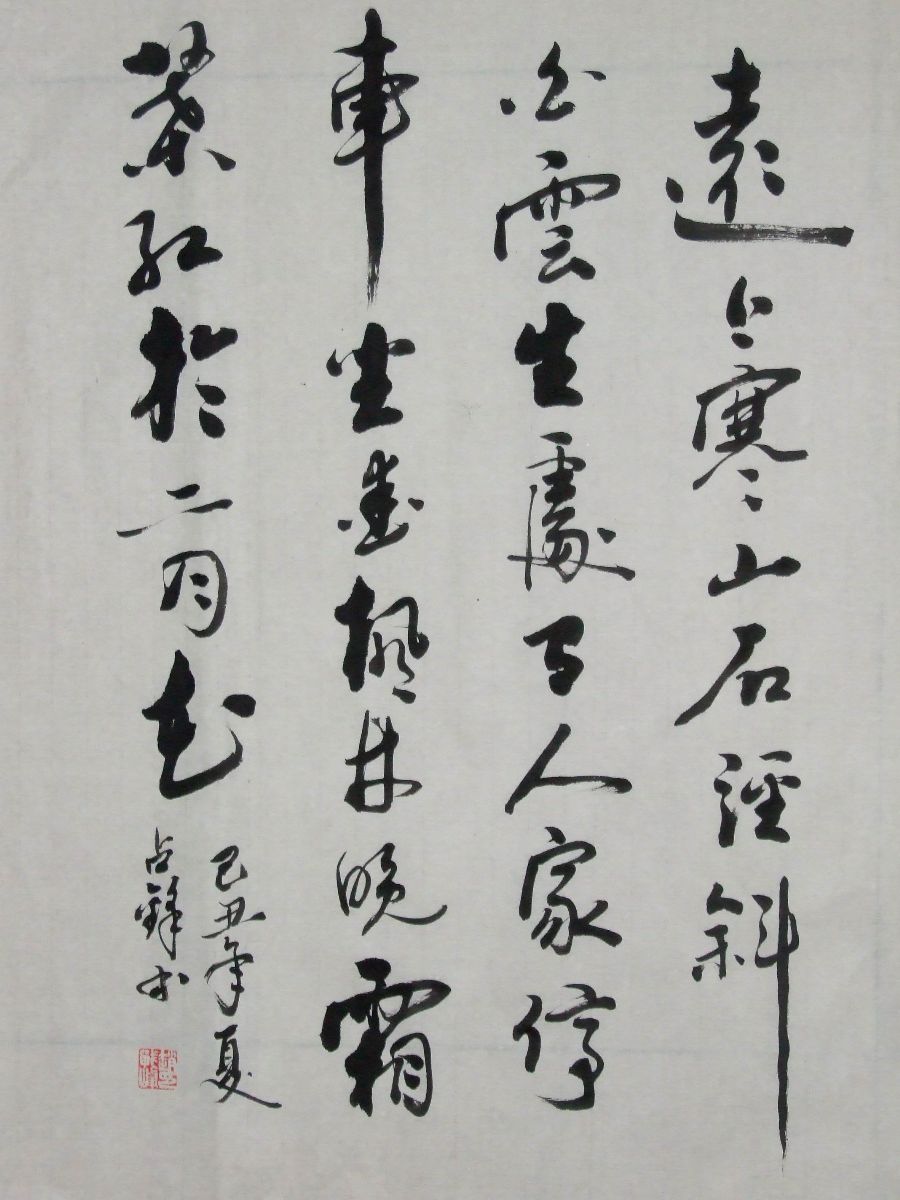 遠上寒山石徑斜
白雲生處有人家停
車坐愛楓林晚霜
葉紅於二月花
己丑年夏
占鋒書